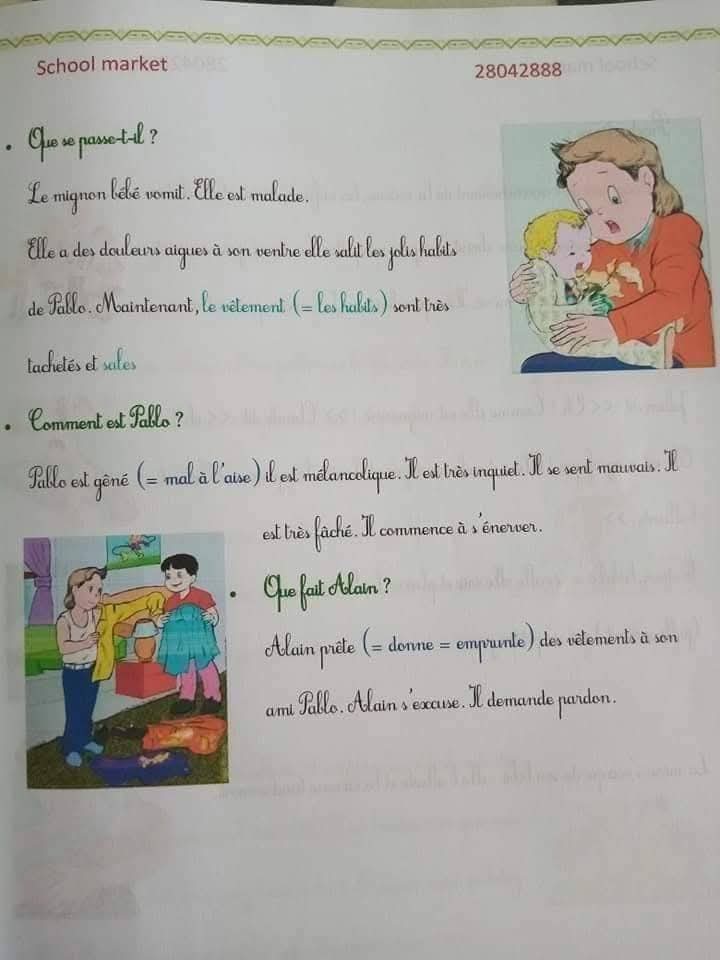 School market
28042888
• Que se passe-t-il ?
Le mignon bébé vomit. Elle est malade.
Elle a des douleurs aigues à son ventre elle salit les jolis habits
de Pablo. Maintenant, le vêtement (= les habits) sont très
tachetés et sales
• Comment est Pablo ?
Pablo est gêné (= mal à l'aise) il est mélancolique. Il est très inquiet. Il se sent mauvais. Il
est très fâché. Il commence à s'énerver.
• Que fait Alain ?
Alain prête (= donne = emprunte) des vêtements à son
ami Pablo. Alain s'excuse. Il demande pardon.